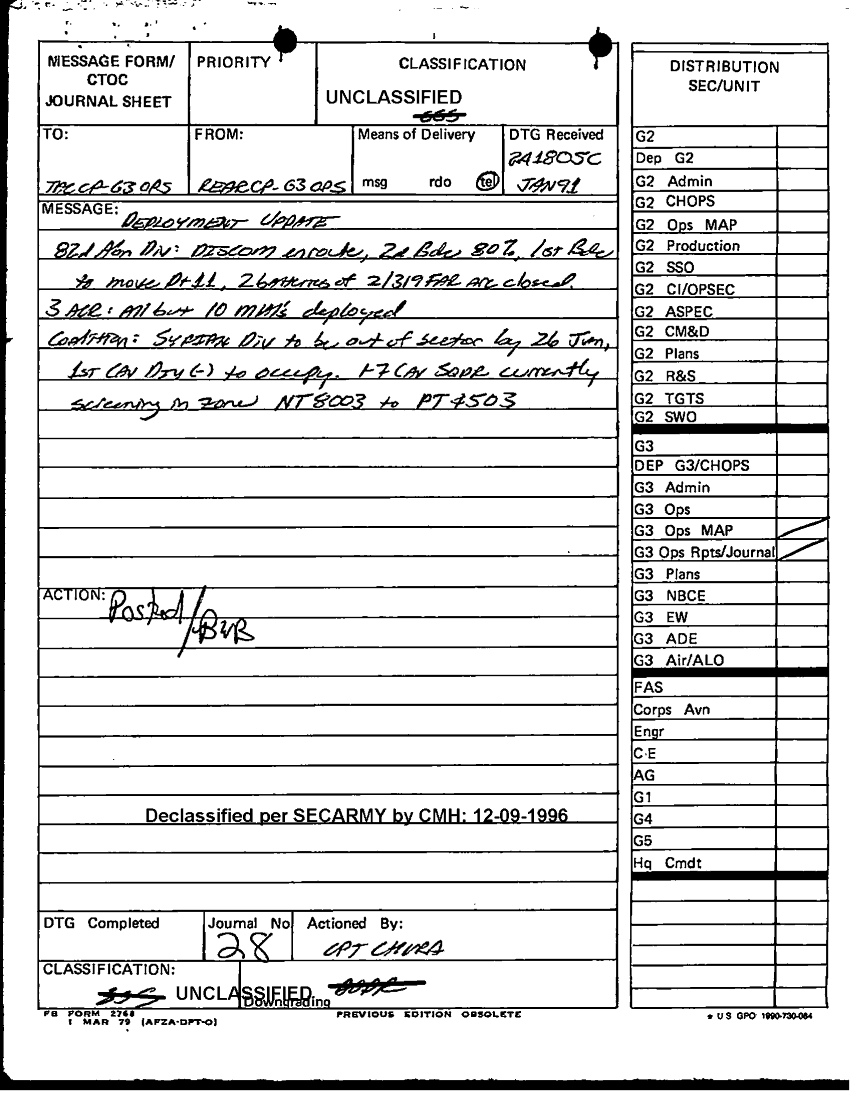 MESSAGE FORM/
CTOC
JOURNAL SHEET
PRIORITY
CLASSIFICATION
UNCLASSIFIED
TO:
TAC CP-G3 OPS
FROM:
REAR CP-G3 OPS
Means of Delivery
msg rdo tel
DTG Received
241805C
JAN 91
MESSAGE:
DEPLOYMENT UPDATE
82d Abn Div: DISCOM enroute, 2d Bde 80%, 1st Bde
to move D+11, 2 batteries of 2/319 FAR are closed.
3 ACR: All but 10 MM's deployed
Coalition: SYRIAN Div to be out of sector by 26 Jan,
1ST CAV DIV (-) to occupy. 1-7 CAV SQDR currently
screening in zone NT8003 to PT4503
ACTION:
Posted/BWB
Declassified per SECARMY by CMH: 12-09-1996
DTG Completed
Journal No
28
Actioned By:
CPT CHURA
CLASSIFICATION:
UNCLASSIFIED
Downgrading
FB FORM 2768
1 MAR 79 (AFZA-DPT-O)
PREVIOUS EDITION OBSOLETE
DISTRIBUTION
SEC/UNIT
G2
Dep G2
G2 Admin
G2 CHOPS
G2 Ops MAP
G2 Production
G2 SSO
G2 CI/OPSEC
G2 ASPEC
G2 CM&D
G2 Plans
G2 R&S
G2 TGTS
G2 SWO
G3
DEP G3/CHOPS
G3 Admin
G3 Ops
G3 Ops MAP
G3 Ops Rpts/Journal
G3 Plans
G3 NBCE
G3 EW
G3 ADE
G3 Air/ALO
FAS
Corps Avn
Engr
C-E
AG
G1
G4
G5
Hq Cmdt
* U S GPO 1990-730-084